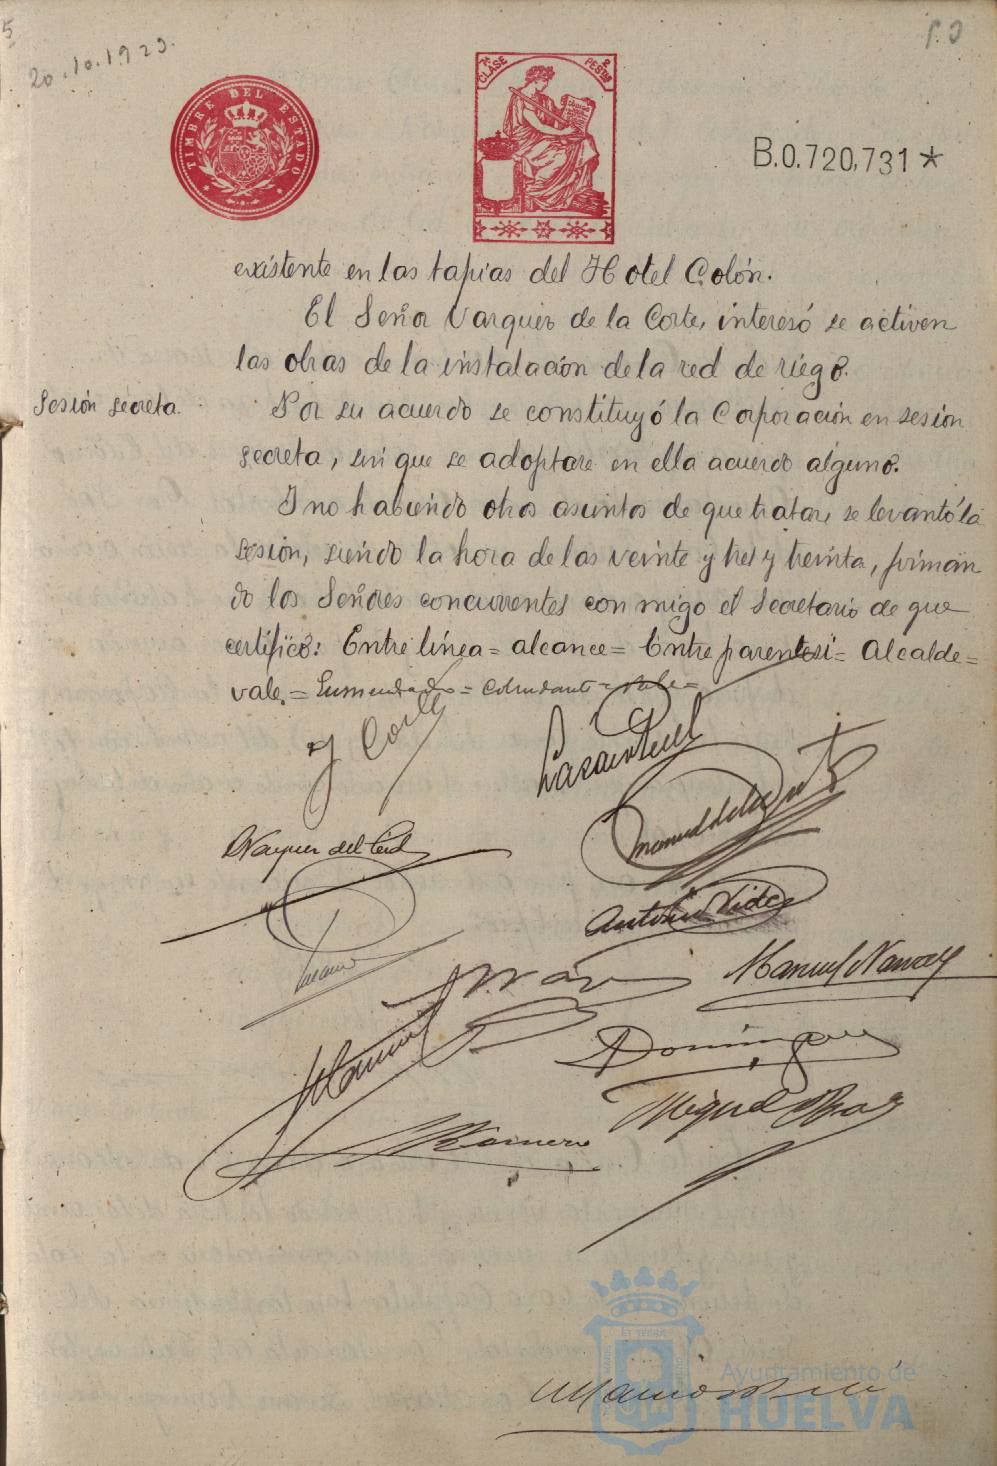 20.10.1923.
TIMBRE DEL ESTADO
7ª CLASE
2 PESTAS
B.0.720,731 *
existente en las tapias del Hotel Colón.
El Señor Vazquez de la Corte, interesó se activen
las obras de la instalación de la red de riego.
Sesión secreta.
Por su acuerdo se constituyó la Corporación en sesión
secreta, sin que se adoptare en ella acuerdo alguno.
Y no habiendo otros asuntos de que tratar, se levantó la
sesión, siendo la hora de las veinte y tres y treinta, firman
do los Señores concurrentes con migo el Secretario de que
certifico: Entre línea = alcance = Entre parentesi = Alcalde =
vale. = Enmendado = Vale =
Antonio Vides
Manuel
Dominguez
Miguel
Romero
Ayuntamiento de
HUELVA